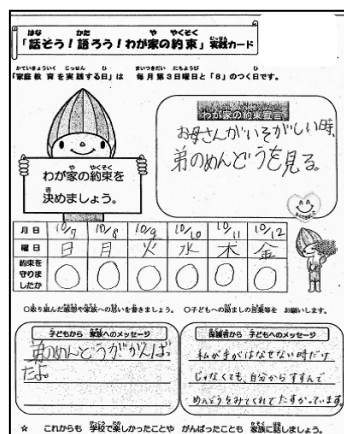 「話そう！語ろう！わが家の約束」実践カード
「家庭教育を実践する日」は 毎月第3日曜日と「8」のつく日です。
わが家の約束宣言
お母さんがいそがしい時、
弟のめんどうを見る。
わが家の約束を
決めましょう。
月日 10/7 10/8 10/9 10/10 10/11 10/12
曜日 日 月 火 水 木 金
約束を守りましたか ○ ○ ○ ○ ○ ○
○取り組んだ感想や家族への思いを書きましょう。 ○子どもへの励ましの言葉等を お願いします。
子どもから 家族へのメッセージ
弟のめんどうがんばっ
たよ。
保護者から 子どもへのメッセージ
私が手がはなせない時だけ
じゃなくても、自分からすすんで
めんどうをみてくれてたすかっています。
☆ これからも 学校で楽しかったことや がんばったことも 家族に話しましょう。